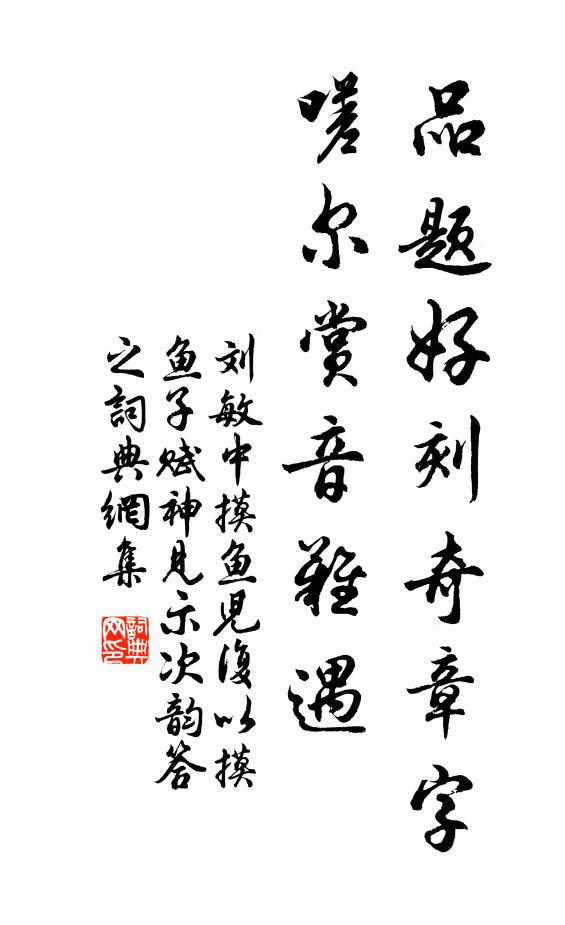 品题好刻奇章字
嗟尔赏音難遇
刘敏中摸鱼児復以摸
鱼子赋神見示次韵答
之詞典網集
詞典
网印